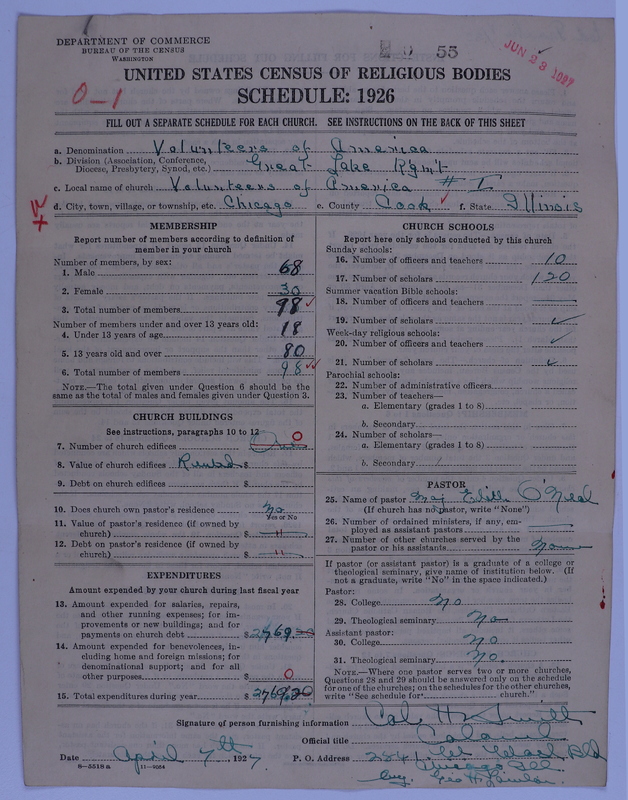 DEPARTMENT OF COMMERCE
BUREAU OF THE CENSUS
WASHINGTON
55
JUN 23 1927
UNITED STATES CENSUS OF RELIGIOUS BODIES
SCHEDULE: 1926
0-1
FILL OUT A SEPARATE SCHEDULE FOR EACH CHURCH. SEE INSTRUCTIONS ON THE BACK OF THIS SHEET
a. Denomination Volunteers of America
b. Division (Association, Conference, Diocese, Presbytery, Synod, etc.) Great Lake Rgmt
c. Local name of church Volunteers of America # I
d. City, town, village, or township, etc. Chicago e. County Cook f. State Illinois
MEMBERSHIP
Report number of members according to definition of
member in your church
Number of members, by sex:
1. Male 68
2. Female 30
3. Total number of members 98
Number of members under and over 13 years old:
4. Under 13 years of age 18
5. 13 years old and over 80
6. Total number of members 98
NOTE.—The total given under Question 6 should be the
same as the total of males and females given under Question 3.
CHURCH BUILDINGS
See instructions, paragraphs 10 to 12
7. Number of church edifices 0
8. Value of church edifices Rented $
9. Debt on church edifices $
10. Does church own pastor's residence? No
Yes or No
11. Value of pastor's residence (if owned by
church) $ "
12. Debt on pastor's residence (if owned by
church) $ "
EXPENDITURES
Amount expended by your church during last fiscal year
13. Amount expended for salaries, repairs,
and other running expenses; for im-
provements or new buildings; and for
payments on church debt $ 2769.20
14. Amount expended for benevolences, in-
cluding home and foreign missions; for
denominational support; and for all
other purposes $ 0
15. Total expenditures during year $ 2769.20
CHURCH SCHOOLS
Report here only schools conducted by this church
Sunday schools:
16. Number of officers and teachers 10
17. Number of scholars 120
Summer vacation Bible schools:
18. Number of officers and teachers
19. Number of scholars
Week-day religious schools:
20. Number of officers and teachers
21. Number of scholars
Parochial schools:
22. Number of administrative officers
23. Number of teachers—
a. Elementary (grades 1 to 8)
b. Secondary
24. Number of scholars—
a. Elementary (grades 1 to 8)
b. Secondary
PASTOR
25. Name of pastor Maj Edith O'Neal
(If church has no pastor, write "None")
26. Number of ordained ministers, if any, em-
ployed as assistant pastors
27. Number of other churches served by the
pastor or his assistants None
If pastor (or assistant pastor) is a graduate of a college or
theological seminary, give name of institution below. (If
not a graduate, write "No" in the space indicated.)
Pastor:
28. College No
29. Theological seminary No
Assistant pastor:
30. College No
31. Theological seminary No.
NOTE.—Where one pastor serves two or more churches,
Questions 28 and 29 should be answered only on the schedule
for one of the churches; on the schedules for the other churches,
write "See schedule for church."
Signature of person furnishing information Col. H
Official title Colonel
Date April 7th, 1927 P. O. Address
Chicago Ill
Geo H.
8—5518 a 11—9054